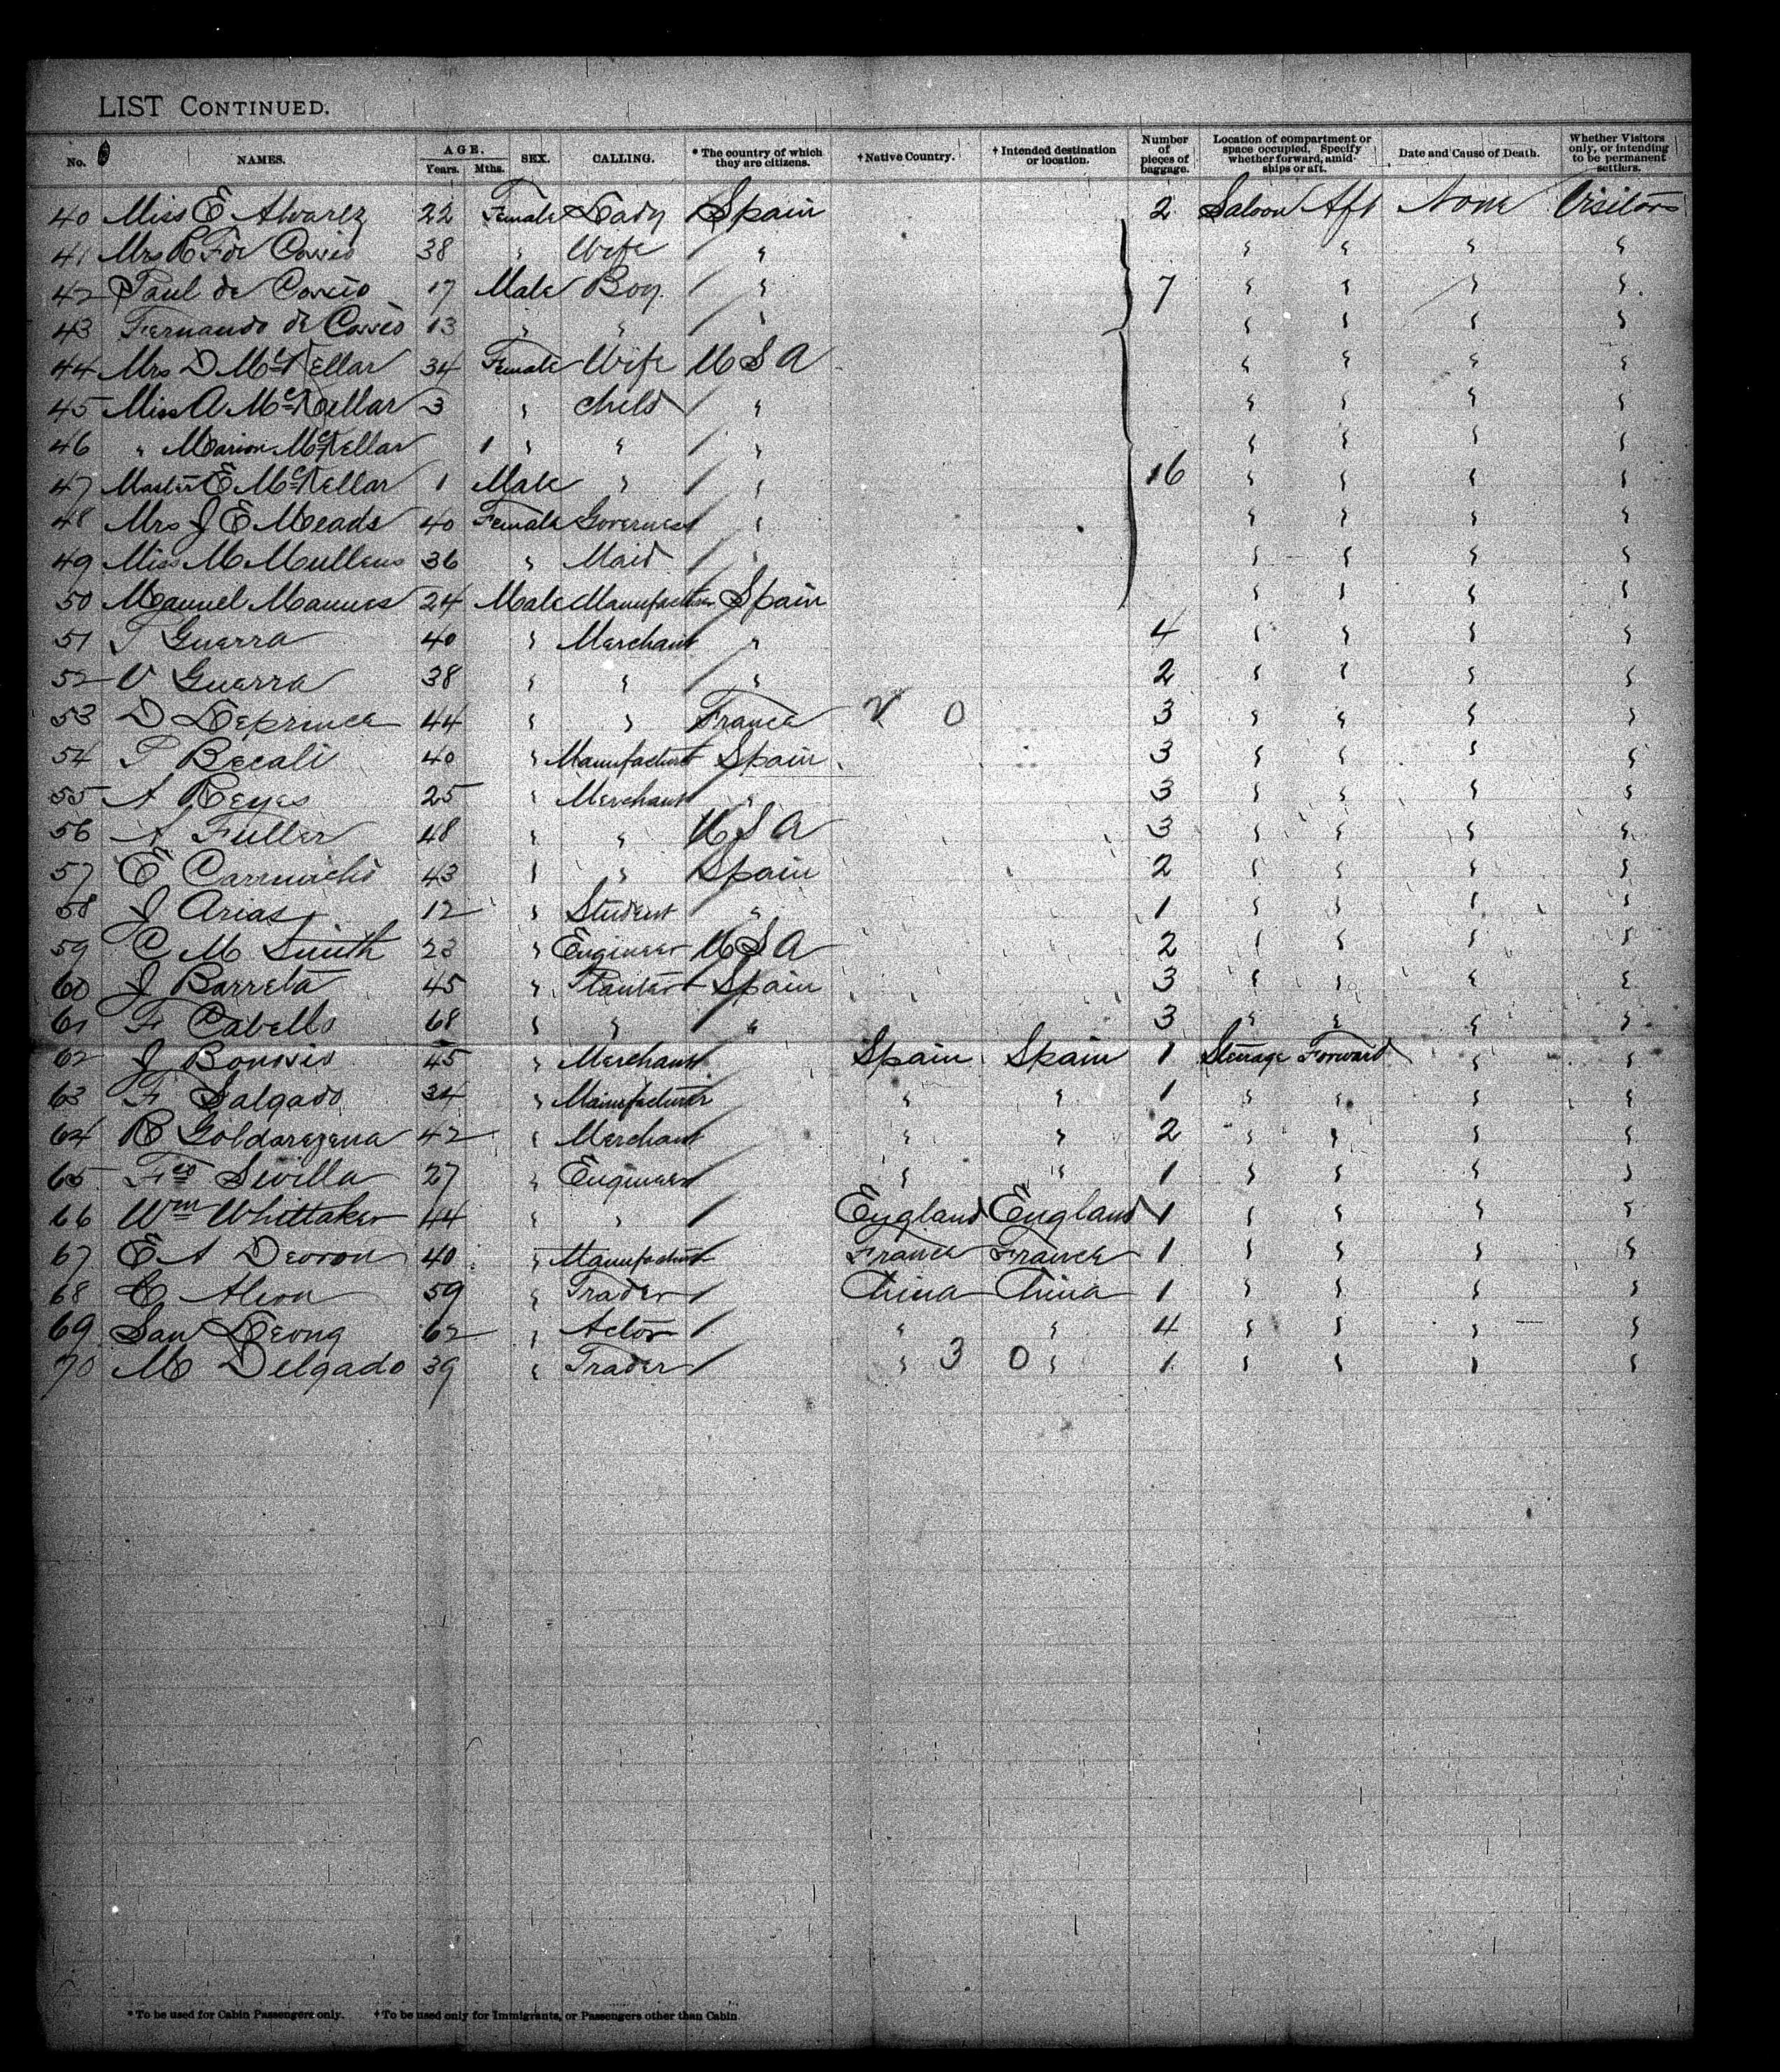 LIST CONTINUED.
No. NAMES. AGE. Years. Mths. SEX. CALLING. * The country of which they are citizens. † Native Country. † Intended destination or location. Number of pieces of baggage. Location of compartment or space occupied. Specify whether forward, amidships or aft. Date and Cause of Death. Whether Visitors only, or intending to be permanent settlers.
40 Miss E Alvarez 22 Female Lady Spain 2 Saloon Aft None Visitors
41 Mrs R F de Cossio 38 " Wife "
42 Paul de Cossio 17 Male Boy " 7
43 Fernando de Cossio 13 " " "
44 Mrs D McKellar 34 Female Wife U S A
45 Miss A McKellar 3 " Child "
46 " Marion McKellar 1 " " "
47 Master E McKellar 1 Male " " 16
48 Mrs J E Meads 40 Female Governess "
49 Miss M Mullens 36 " Maid "
50 Manuel 24 Male Manufacturer Spain
51 Guerra 40 " Merchant " 4
52 V Guerra 38 " " " 2
53 D Leprince 44 " " France 2 0 3
54 P Becali 40 " Manufacturer Spain 3
55 A Reyes 25 " Merchant " 3
56 A Fuller 48 " " U S A 3
57 E 43 " " Spain 2
58 J Arias 12 " Student " 1
59 C M Smith 23 " Engineer U S A 2
60 J Barreta 45 " Planter Spain 3
61 F Cabello 68 " " " 3
62 J 45 " Merchant Spain Spain 1 Steerage Forward
63 F Salgado 34 " Manufacturer " " 1
64 R Goldarezena 42 " Merchant " " 2
65 Fco Sevilla 27 " Engineer " " 1
66 Wm Whittaker 44 " " England England 1
67 E A 40 " Manufacturer France France 1
68 C 59 " Trader China China 1
69 San Leong 62 " Actor " " 4
70 M Delgado 39 " Trader " 3 0 " 1
* To be used for Cabin Passengers only. † To be used only for Immigrants, or Passengers other than Cabin.